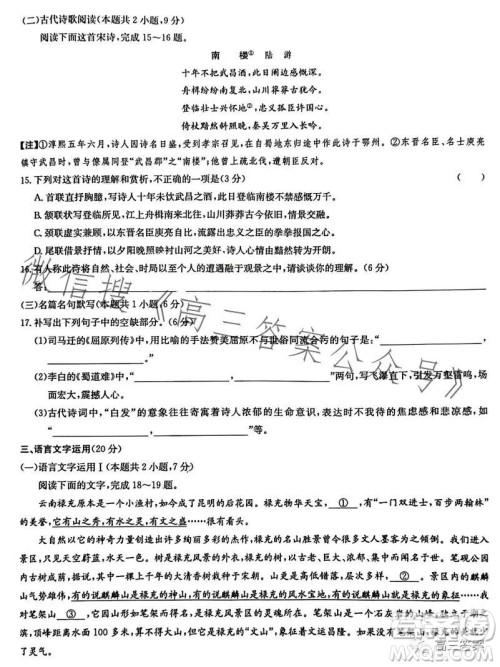 (二)古代诗歌阅读(本题共2小题,9分)
阅读下面这首宋诗,完成15~16题。
南 楼① 陆 游
十年不把武昌酒,此日阑边感慨深。
舟楫纷纷南复北,山川莽莽古犹今。
登临壮士兴怀地②,忠义孤臣许国心。
倚柱黯然斜照晚,秦吴万里入长吟。
【注】①淳熙五年六月,诗人因诗名日盛,受到孝宗召见,在由蜀地东归途中作此诗于鄂州。②东晋名臣、名士庾亮
镇守武昌时,曾与僚属同登“武昌郡”之“南楼”,他屡立战功,遭朝臣反对。
15.下列对这首诗的理解和赏析,不正确的一项是(3分) ( )
A.首联直抒胸臆,写诗人十年未饮武昌之酒,此日凭栏之时,感慨颇深。
B.颔联描写登临之所见,江上舟船纷纷,南来北往,山川莽莽古今依旧。
C.颈联借古喻今,以东晋名臣庾亮自比,表达诗人的以身许国之志。
D.尾联情景交融,以夕阳晚照映衬山河之景,给人雄阔之感。
16.有人称此诗将景与人、自然与社会、历史与个人的遭遇融于观景之中,请谈谈你的理解。(6分)
答:
(三)名篇名句默写(本题共1小题,6分)
17.补写出下列句子中的空缺部分。(6分)
(1)司马迁的《屈原列传》中,用比喻的手法来赞美屈原不与世俗同流合污的句子是“
”。
(2)李白的《蜀道难》中,“ , ”两句,写飞瀑直下,引发万壑雷鸣,场
面宏大。
(3)古代诗词中,“白发”的意象往往寄寓着诗人浓郁的生命意识,表达对时不我待的焦虑感和悲凉感,如
“ , ”。
三、语言文字运用(20分)
(一)语言文字运用Ⅰ(本题共2小题,7分)
阅读下面的文字,完成18~19题。
云南禄充原本是一个小渔村,如今成了昆明的后花园。禄充物华天宝, ① ,有“一门双进士,百步两翰林”
的美誉,它有山之秀,有水之灵,有文人,也有古迹。
大自然以它的神奇力量创造出许多绚丽多彩的杰作,禄充风景区的名山胜景曾令很多文人墨客为之倾倒。我们进入
景区,只见天空蔚蓝,水天一色。禄充风景区的景观以水景、山景、古迹居多、浓荫蔽日、 ② 。笔砚公园内有
笔架山、麒麟山,其中一棵上千年的大清香树依山而立,颇有灵气。有的说麒麟山是禄充的神山,保佑着这里的一
山气势如虹,有的说麒麟山是禄充的风水宝地,有的说麒麟山是禄充的风水宝地,有的说麒麟山是禄充的灵魂。我
对笔架山 ③ ,笔架山是禄充风景区所有古迹所在之山,因山峰酷似古人搁笔的笔架而得名。站在笔架山山顶,
顶峰距离两端大约四百米,像一个硕大的“大山”,象征着富运昌隆。笔架山给当地人带来了吉祥,给禄充风景区带来
了灵气。
微信搜《高三答案公众号》
高三答案